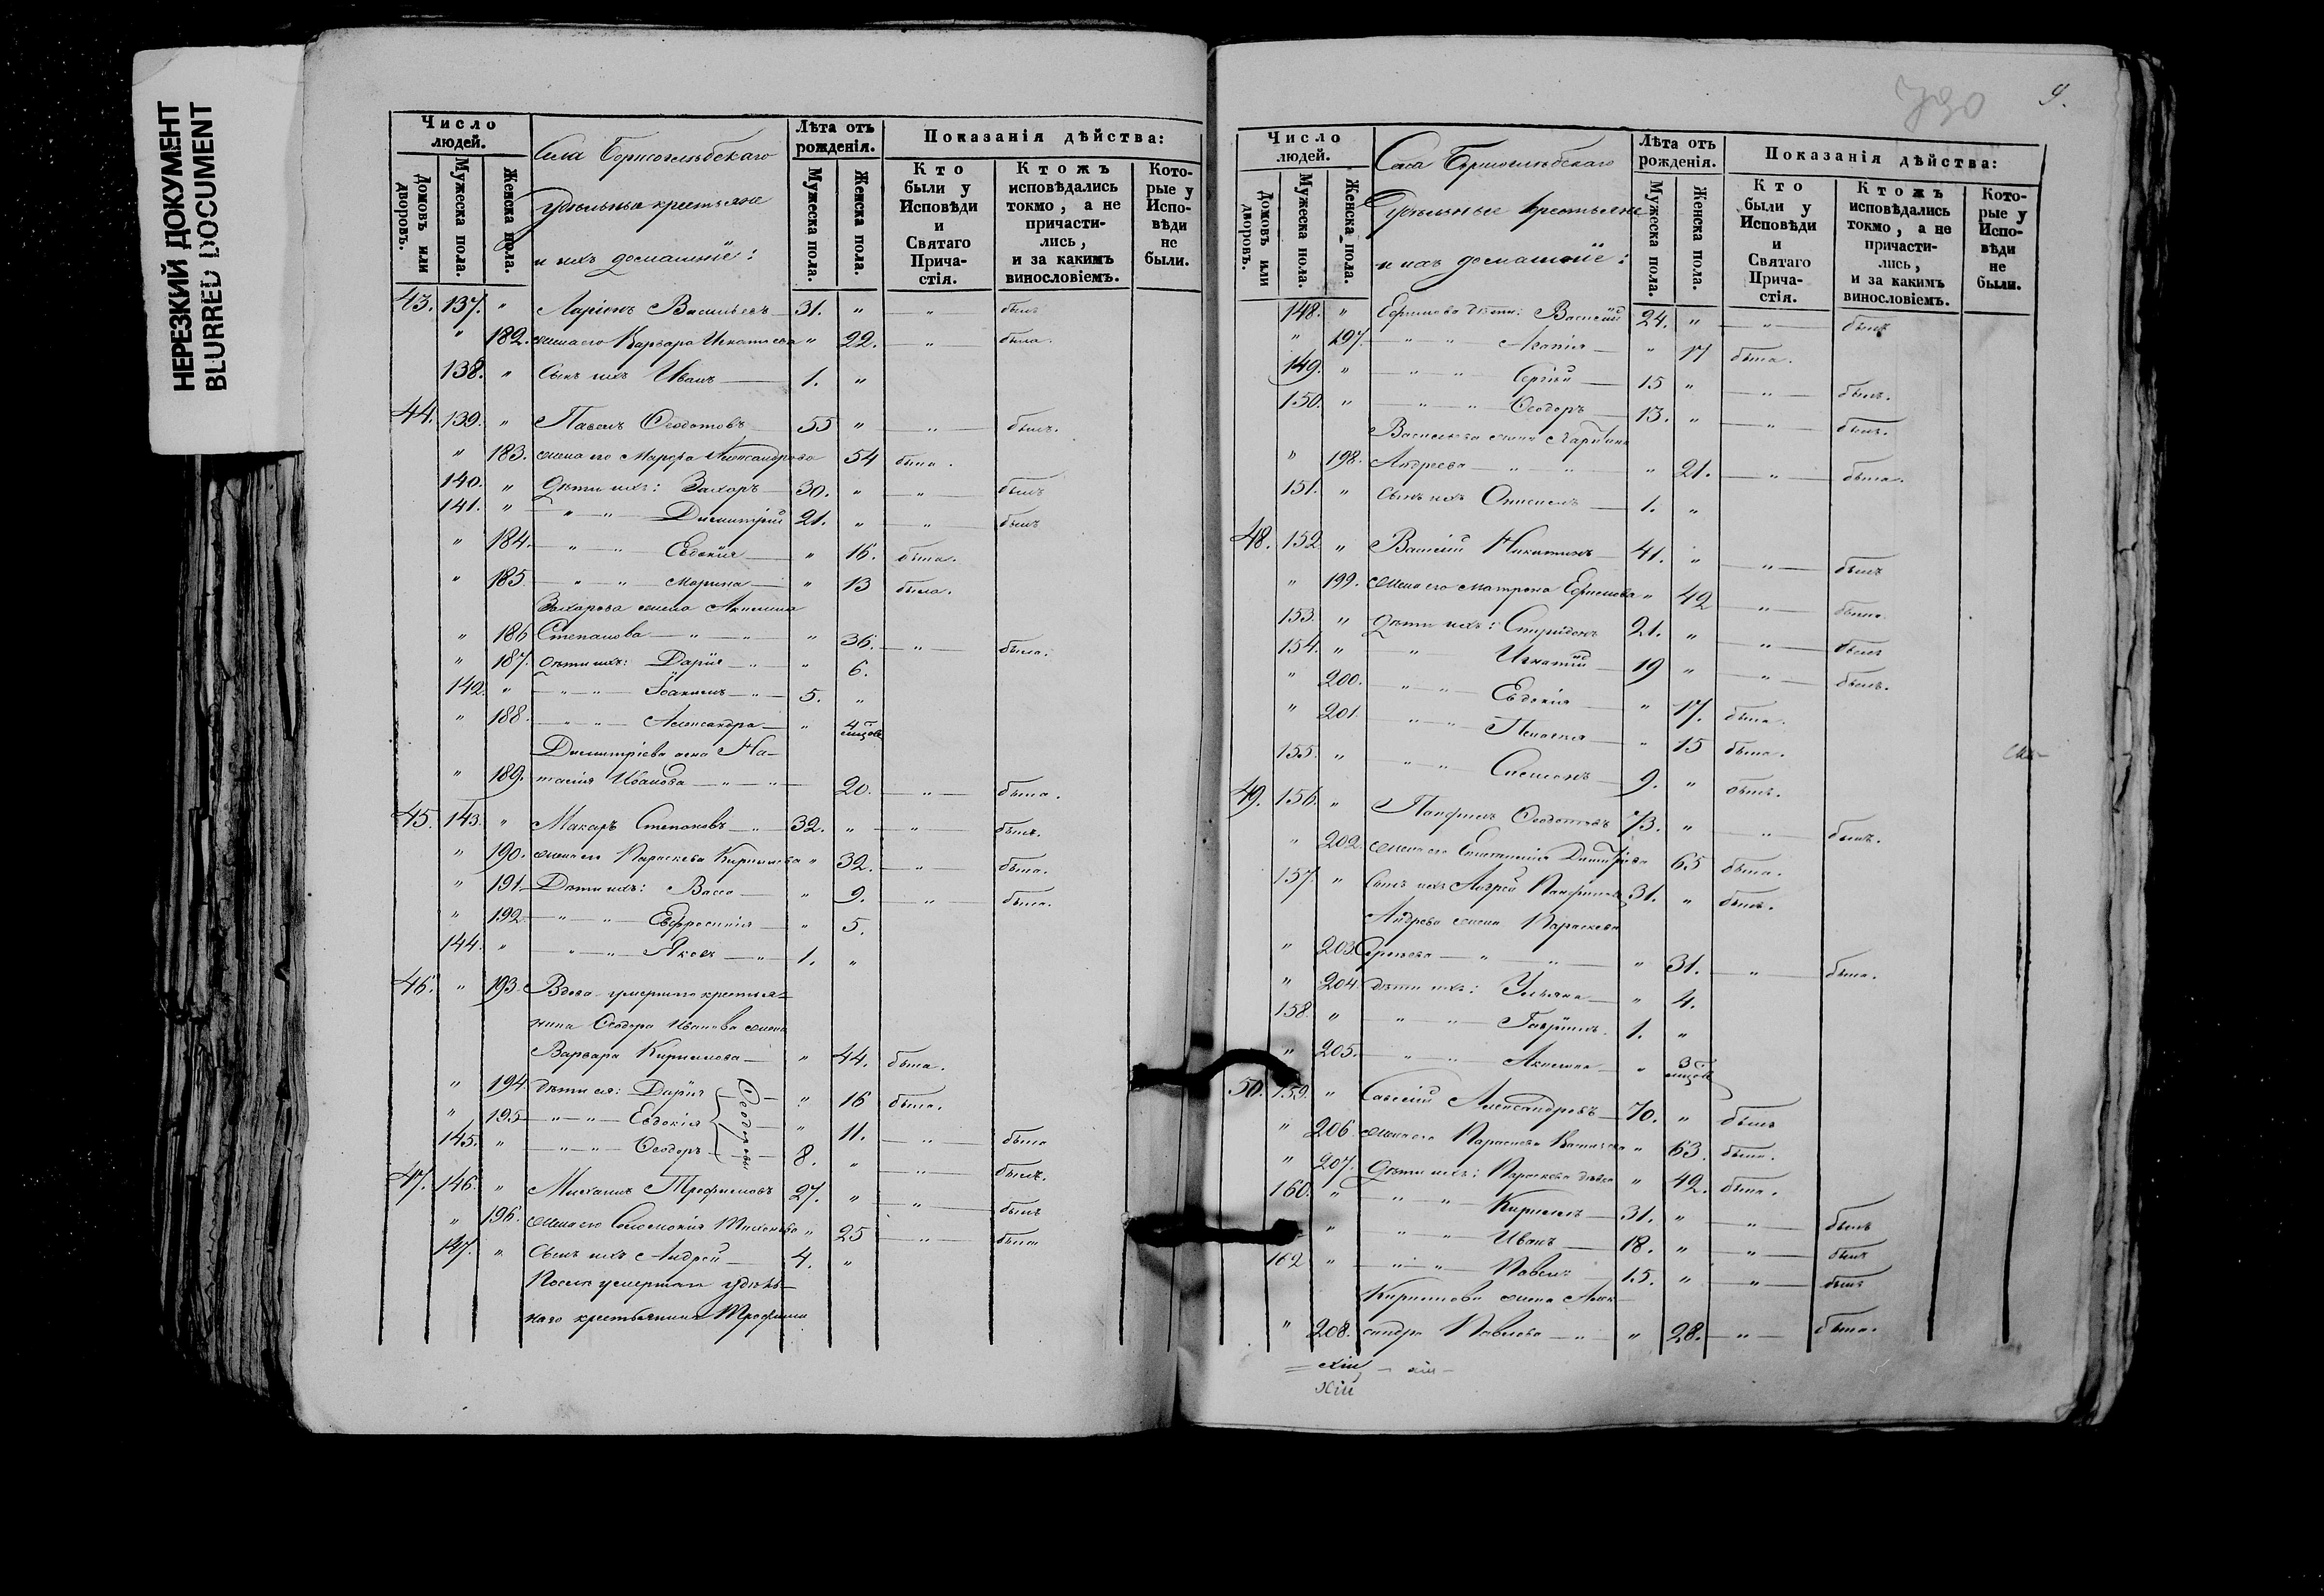 НЕРЕЗКИЙ ДОКУМЕНТ
BLURRED DOCUMENT
Число людей.
Домовъ или дворовъ.
Мужеска пола.
Женска пола.
Села Борисоглѣбскаго
удѣльные крестьяне
и ихъ домашніе:
Лѣта отъ рожденія.
Мужеска пола.
Женска пола.
Показанія дѣйства:
Кто были у Исповѣди и Святаго Прича-стія.
Ктожъ исповѣдались токмо, а не причасти-лись, и за какимъ винословіемъ.
Кото-рые у Испо-вѣди не были.
43. 137. " Ларіонъ Васильевъ 31. " " былъ
" 182. жена его Варвара Игнатьева " 22. " была.
138. " Сынъ ихъ Иванъ 1. "
44. 139. " Павелъ Ѳеодотовъ 55 " " былъ.
" 183. жена его Марѳа Александрова 54 была.
140. " Дѣти ихъ: Захаръ 30. " " былъ
141. " " " Димитрій 21. " " былъ
" 184. " " Евдокія " 16. была.
" 185. " " Марина " 13 была.
Захарова жена Акилина
" 186 Степанова " " " 36. " была.
" 187. Дѣти ихъ: Дарія " " 6.
142. " " " Іоакимъ " 5. "
" 188. " " Александра " 4 мѣсяцовъ
Димитріева жена На-
" 189. талія Иванова " " 20. " была.
45. 143. " Макаръ Степановъ " 32. " " былъ.
" 190. жена его Параскева Кириллова " 32. " была.
" 191. Дѣти ихъ: Васса " 9. " была.
" 192 " " Евфросинія " 5.
144. " " " Яковъ " 1. "
46. " 193. Вдова умершаго крестья-
нина Ѳеодора Иванова жена
Варвара Кириллова " 44. была.
" 194 Дѣти ея: Дарія " 16 была.
" 195 " " Евдокія " 11. " была
145. " " " Ѳеодоръ 8. " " былъ.
Ѳеодоровы
47. 146. " Михаилъ Трофимовъ 27. " " былъ
" 196. жена его Соломонія " 25 " была
147. " Сынъ ихъ Андрей 4. "
Послѣ умершаго удѣль-
наго крестьянина Трофима
730
9.
Число людей.
Домовъ или дворовъ.
Мужеска пола.
Женска пола.
Села Борисоглѣбскаго
Удѣльные крестьяне
и ихъ домашніе:
Лѣта отъ рожденія.
Мужеска пола.
Женска пола.
Показанія дѣйства:
Кто были у Исповѣди и Святаго Прича-стія.
Ктожъ исповѣдались токмо, а не причасти-лись, и за какимъ винословіемъ.
Кото-рые у Испо-вѣди не были.
148. " Ефимова дѣти: Василій 24. " " былъ
" 197. " " Агапія " 17 была.
149. " " " Сергій 15 " " былъ.
150. " " " Ѳеодоръ 13. " " былъ.
Васильева жена
" 198. Андреева " " " 21. " была.
151. " Сынъ ихъ 1. "
48. 152 " Василій Никитинъ 41. " " былъ
" 199. жена его Матрона Ефимова " 42 " была
153. " Дѣти ихъ: Спиридонъ 21. " " былъ
154. " " Игнатій 19 " " былъ.
" 200. " " Евдокія " 17. была.
" 201. " " Пелагія " 15 была.
155. " " " Симеонъ 9. " былъ.
49. 156. " Памфилъ Ѳеодотовъ 73. " " былъ.
" 202. жена его Димитріева 65 была.
157. " Сынъ ихъ Андрей Памфиловъ 31. " былъ.
Андреева жена Параскева
" 203 " " " 31. " была.
" 204. Дѣти ихъ: Ульяна " 4.
158. " " " Гавріилъ 1. "
" 205. " " Акилина " 3 мѣсяцовъ
50. 159. " Савелій Александровъ 70. " былъ
" 206. жена его Параскева Васильева " 63. была.
" 207. Дѣти ихъ: Параскева дѣвка " 42. была.
160. " " " Кириллъ 31. " " былъ
" " " Иванъ 18. " " былъ
162 " " " Павелъ 15. " " былъ
Кириллова жена Алек-
" 208. сандра Павлова " " 28. " была.